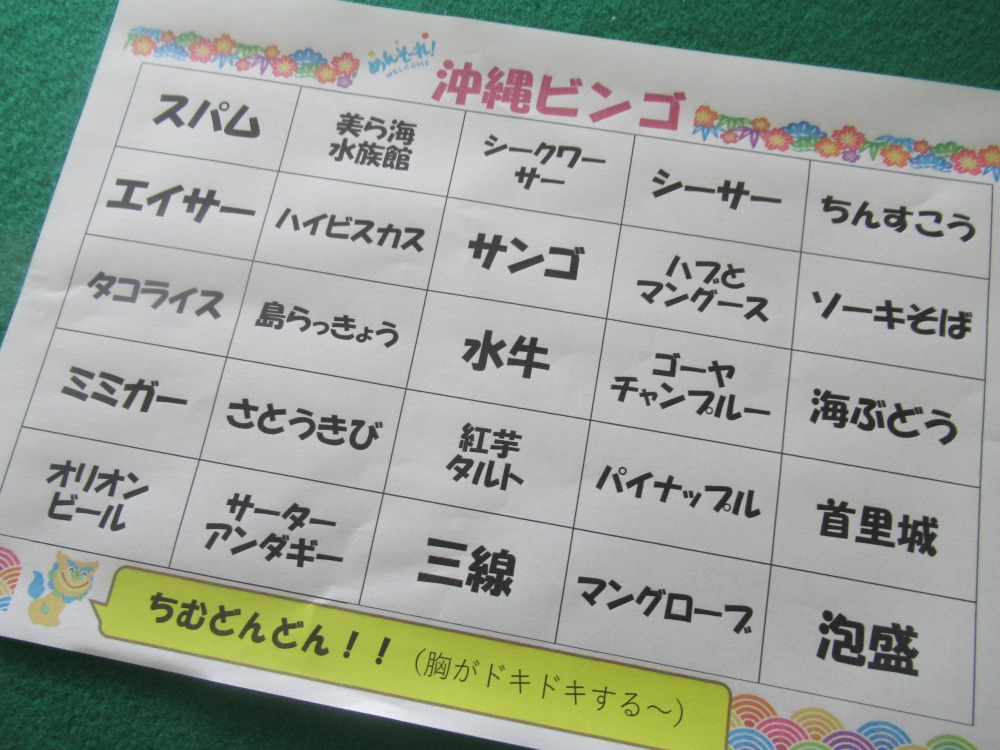 めんそーれ!
WELCOME
沖縄ビンゴ
スパム
美ら海
水族館
シークワー
サー
シーサー
ちんすこう
エイサー
ハイビスカス
サンゴ
ハブと
マングース
ソーキそば
タコライス
島らっきょう
水牛
ゴーヤ
チャンプルー
海ぶどう
ミミガー
さとうきび
紅芋
タルト
パイナップル
首里城
オリオン
ビール
サーター
アンダギー
三線
マングローブ
泡盛
ちむどんどん！！（胸がドキドキする～）